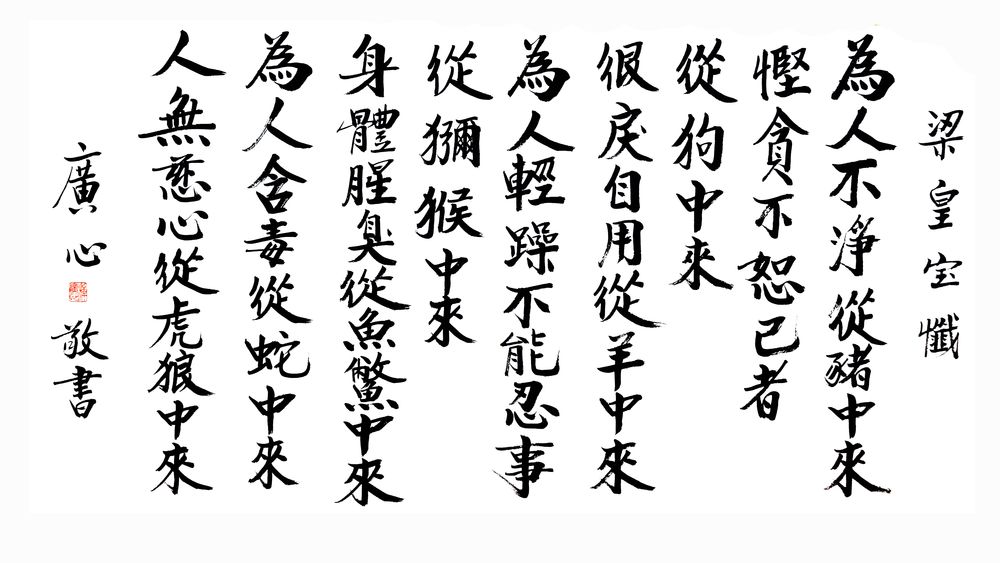 梁皇宝懺
為人不淨從豬中來
慳貪不恕己者
從狗中來
很戾自用從羊中來
為人輕躁不能忍事
從獼猴中來
身體腥臭從魚鱉中來
為人含毒從蛇中來
人無慈心從虎狼中來
廣心敬書